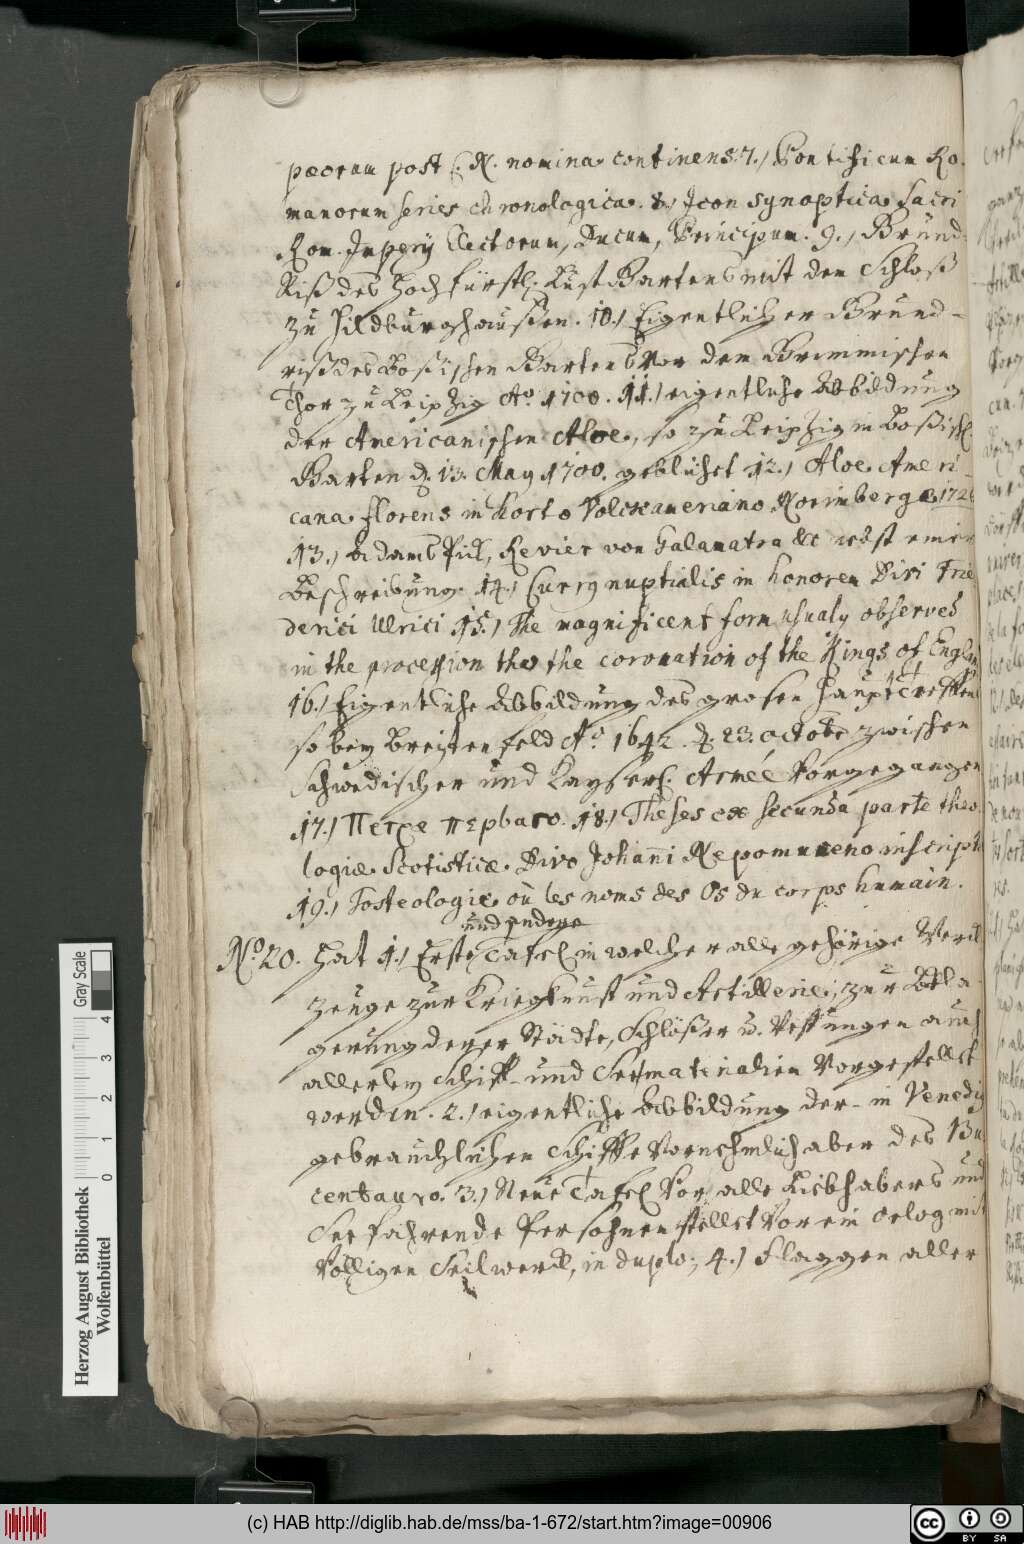 pæorum post C. N. nomina continens. 7.) Pontificum Ro-
manorum series chronologica. 8.) Icon synoptica Sacri
Rom. Imperij Electorum, Ducum, Principum. 9.) Grund-
Riß des Hochfürstl. Lust Gartens mit dem Schloß
zu Hildburghaußen. 10.) Eigentlicher Grund-
riß des Boßischen Gartens vor dem Grimmischen
Thor zu Leipzig Ao. 1700. 11.) eigentliche Abbildung
der Americanischen Aloe, so zu Leipzig in Boßisch.
Garten d. 13. May 1700. geblühet 12.) Aloe Ameri-
cana florens in horto Volckameriano Norimbergæ 1726
13.) Adams Pick, Revier von Galamatra &c nebst einer
Beschreibung. 14.) Currq nuptialis in honorem Divi Frie
derici Ulrici 15.) The magnificent form usualy observed
in the procession the the coronation of the Kings of England
16.) Eigentliche Abbildung des grosen HauptTreffens
so bey Breitenfeld Ao. 1642. d. 23. octobr zwischen
Schwedischer und Kayserl. Armée vorgegangen
17.) 18.) Theses ex secunda parte theo
logiæ Scotisticæ Divo Johanni Nepomuceno inscriptæ
19.) l'osteologie où les noms des Os du corps humain.
und andere
No. 20. Hat 1.) Erste Tafel in welcher alle gehörige Werck
zeuge zur Kriegkunst und Artillerie, zur Bela
gerung derer Städte, Schlößer u. Vestungen auch
allerley Schiff- und Seematerialien vorgestellet
werden. 2.) eigentliche Abbildung der in Venedig
gebräuchlichen Schiffe vornehmlich aber des Bu
centauro. 3.) Neue Tafel vor alle Liebhabers und
Seefahrende Persohnen stellet vor ein orlog mit
völligen Seilwerck, in duplo; 4.) Flaggen aller
Herzog August Bibliothek
Wolfenbüttel
0 1 2 3 4
Gray Scale
(c) HAB http://diglib.hab.de/mss/ba-1-672/start.htm?image=00906
cc BY SA